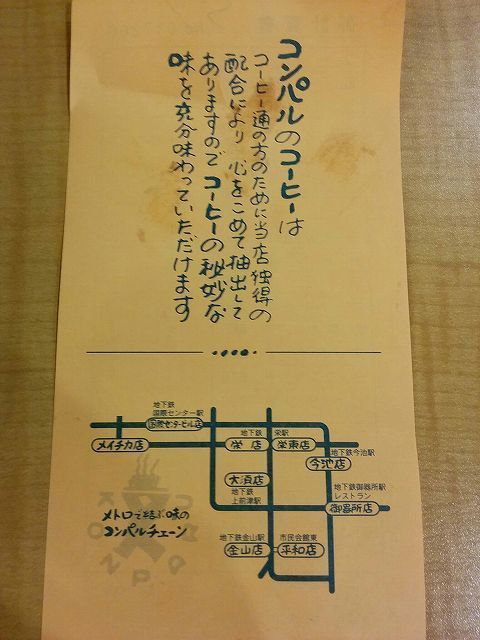 コンパルのコーヒーは
コーヒー通の方のために当店独得の
配合により 心をこめて抽出して
ありますので コーヒーの秘妙な
味を充分味わっていただけます
地下鉄
国際センター駅
国際センタービル店
メイチカ店
地下鉄
栄店
栄駅
栄東店
地下鉄今池駅
今池店
大須店
地下鉄
上前津駅
地下鉄御器所駅
レストラン
御器所店
地下鉄金山駅
金山店
市民会館東
平和店
メトロで結ぶ味の
コンパルチェーン